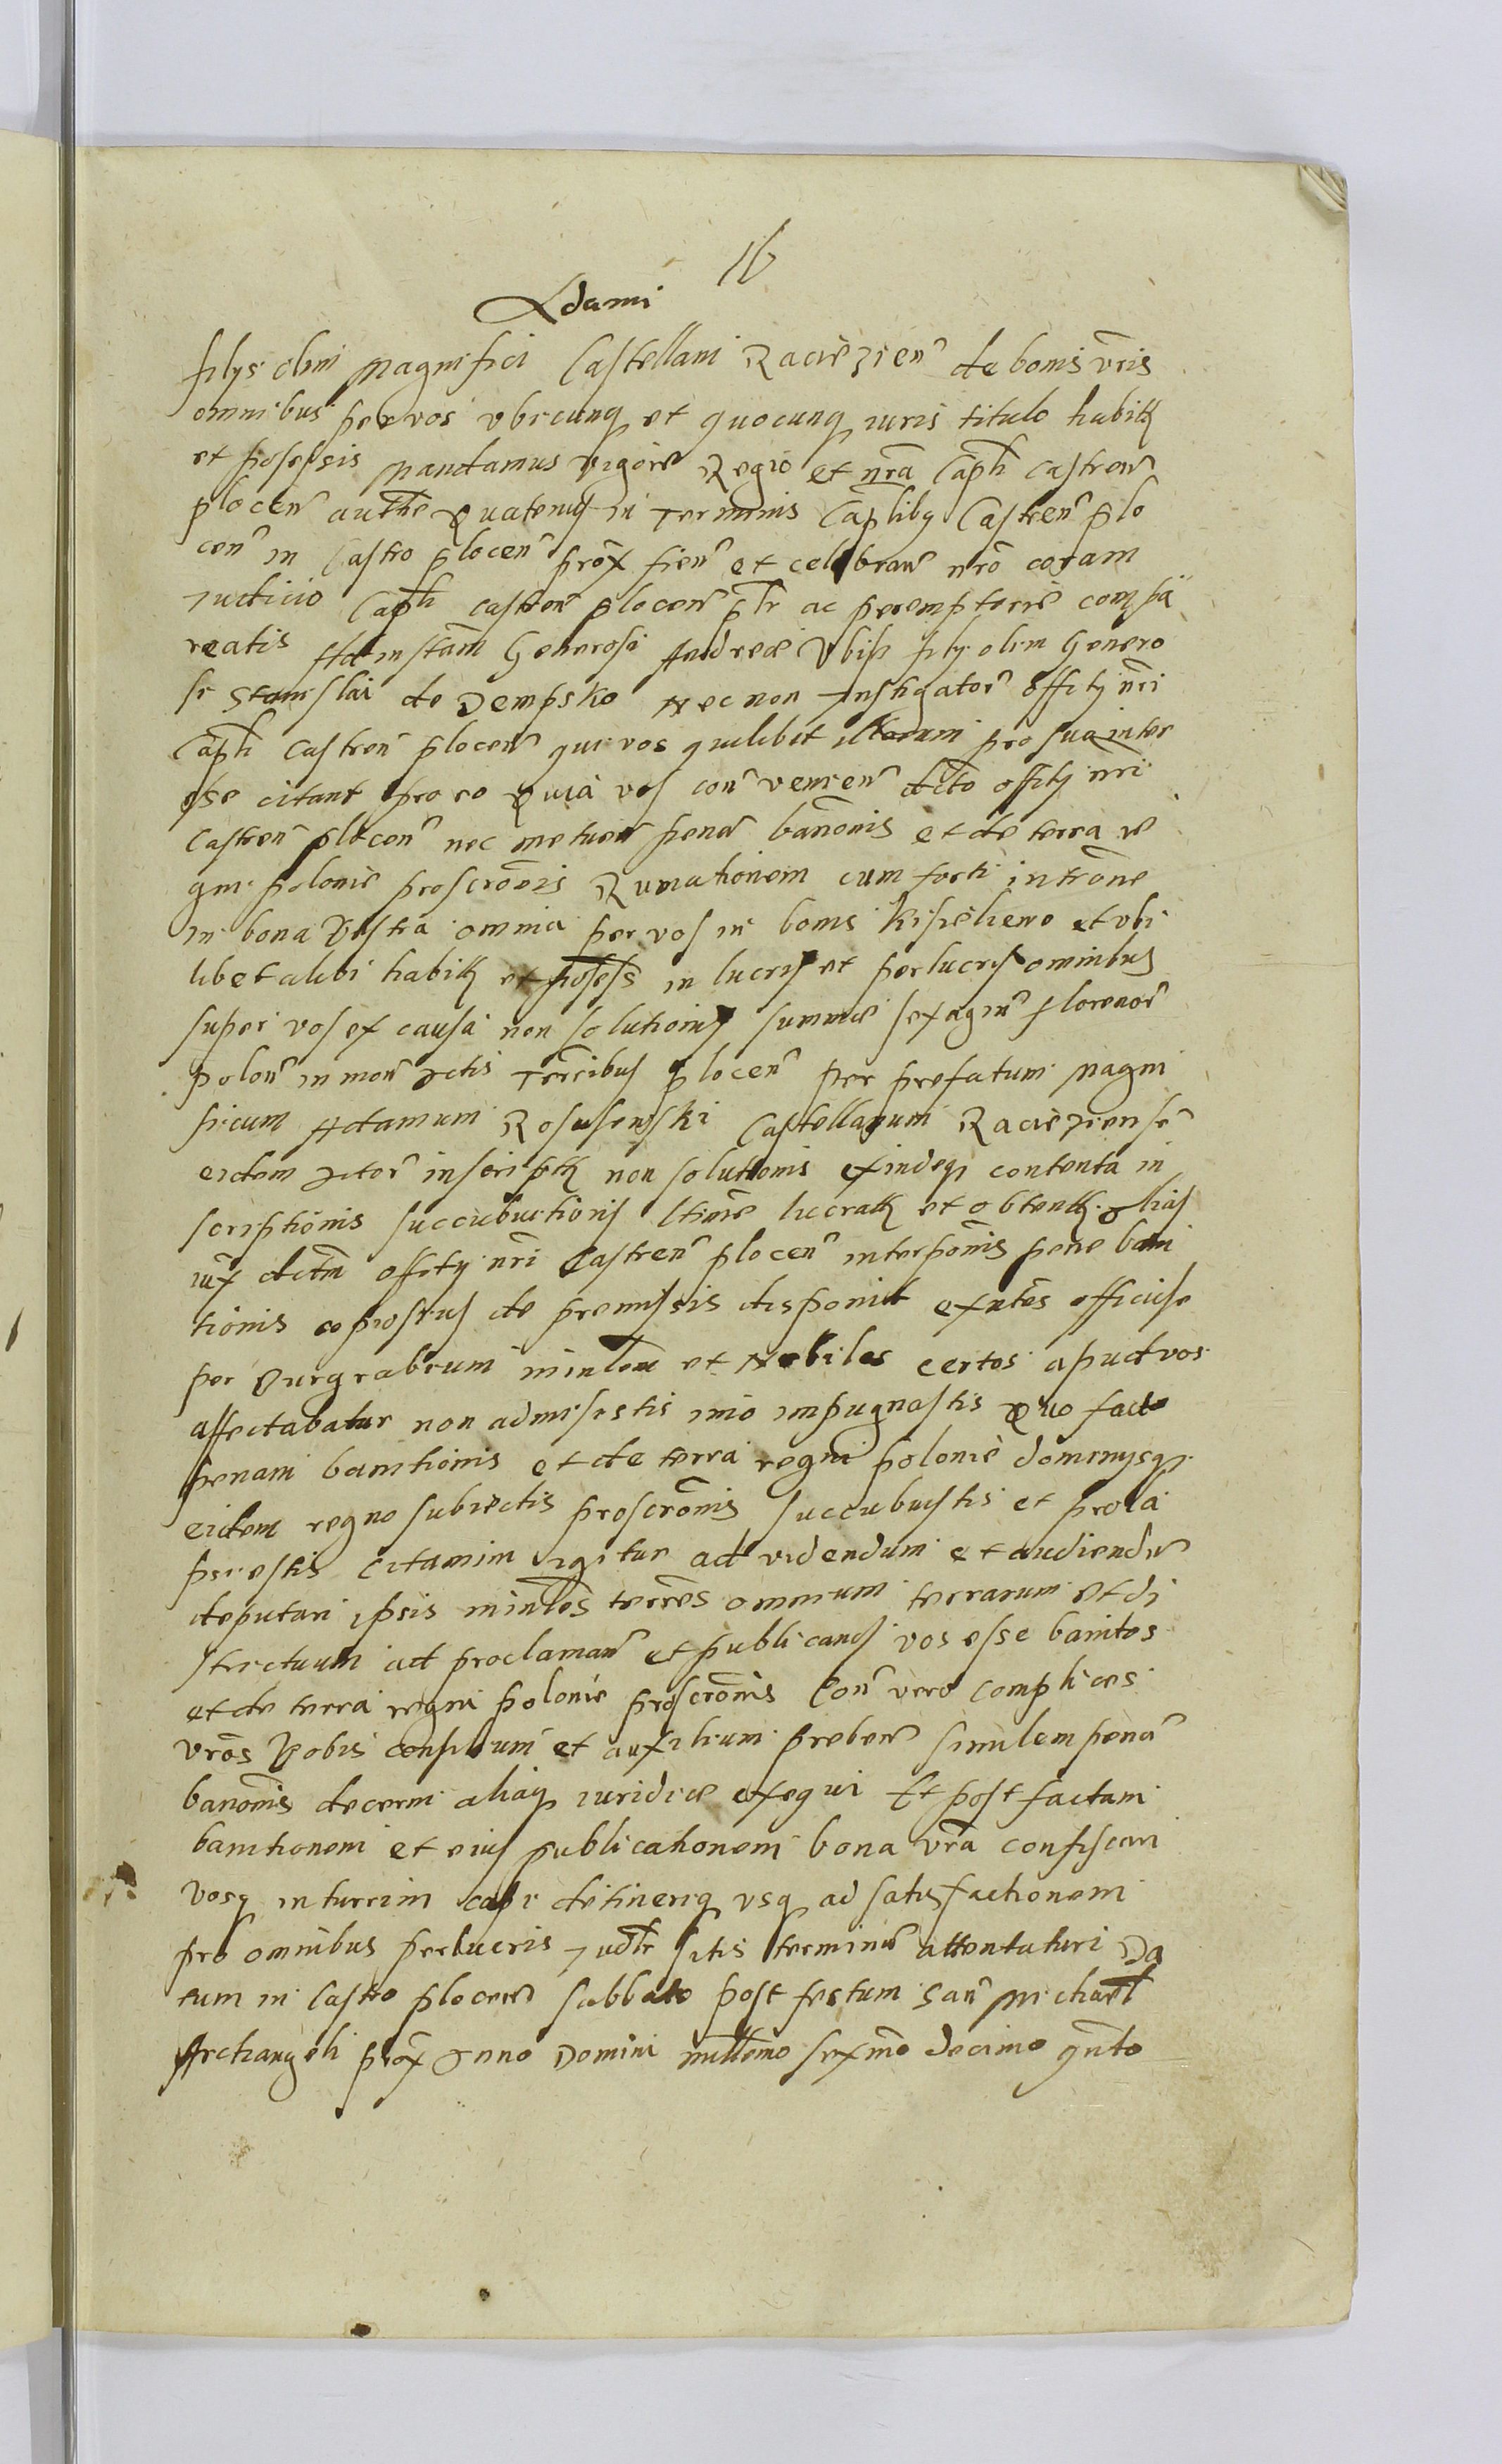 16
Adami
filys olim Magnifici Castellani Raciezien de bonis vris
omnibus per vos vbicunq et quocunq iuris titulo habitt
et possessis Mandamus vigore Regio et nra Caplt castren
plocen authte Quatenus in Terminis Caplibq Castren plo
cen in Castro plocen prox fien et celebran nro coram
Iudicio Caplt castren plocen plr ac peremptorie compa
reatis Ad instam Generosi Andreæ Vbisz fily olim Genero
si Stanislai de Dempsko Nec non Instigator offity nri
Caplt castren plocen qui vos quilibet illorum pro sua inter
esse citant pro eo Quia vos con venien dcto offity nri
castren plocen nec metuen penam banonis et de terra re
gni polonie proscronis Rumationem cum forti introne
in bona Vestra omnia per vos in bonis Kisielewo et vbi
libet alibi habitt et possess in lucris et perlucris omnibus
super vos ex causa non solutionis summæ sexagin florenor
polon in mon Actis Terribus plocen per prefatum Magni
ficum Adamum Rosusewski Castellanum Raciezense
eidem Actor inscriptt non solutionis exindeq contenta in
scriptionis succubuitionis ltime lucratt et obtentt Alias
iux dctm offity nri Castren plocen interponis pene bani
tionis copiosius de premissis disponit exntes officiose
per Burgrabium minlem et Nobiles certos apud vos
affectabatur non admisistis imo impugnastis Quo facto
penam banitionis et de terra regni polonie dominysq
eidem regno subiectis proscronis succubuistis et prola
psi estis Citamini igitur ad videndum et audiendum
deputari ipsis minles terres omnium terrarum et di
strictuum ad proclaman et publicand vos esse banitos
et de terra regni polonie proscronis Con vero complices
vros Vobis consilium et auxilium preben similem pena
banonis decerni aliaq iuridice exequi Et post factam
banitionem et eius publicationem bona vra confiscari
vosq in turrim capi detineriq vsq ad satisfactionem
pro omnibus perlucris Iudtr sitis terminum attentaturi Da
tum in Castro plocen Sabbato post festum San Michael
Archangeli prox Anno Domini millemo sexmo decimo qnto